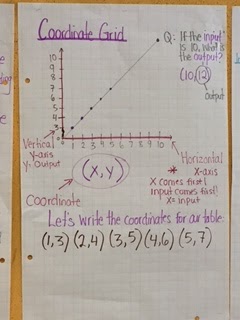 Coordinate Grid
Q: If the input
is 10, what is
the output?
(10,12)
output
10
9
8
7
6
5
4
3
2
1
0 1 2 3 4 5 6 7 8 9 10
Vertical
y-axis
y-output
(x,y)
Coordinate
Horizontal
* x-axis
x comes first!
input comes first!
x=input
Let's write the coordinates for our table:
(1,3) (2,4) (3,5) (4,6) (5,7)